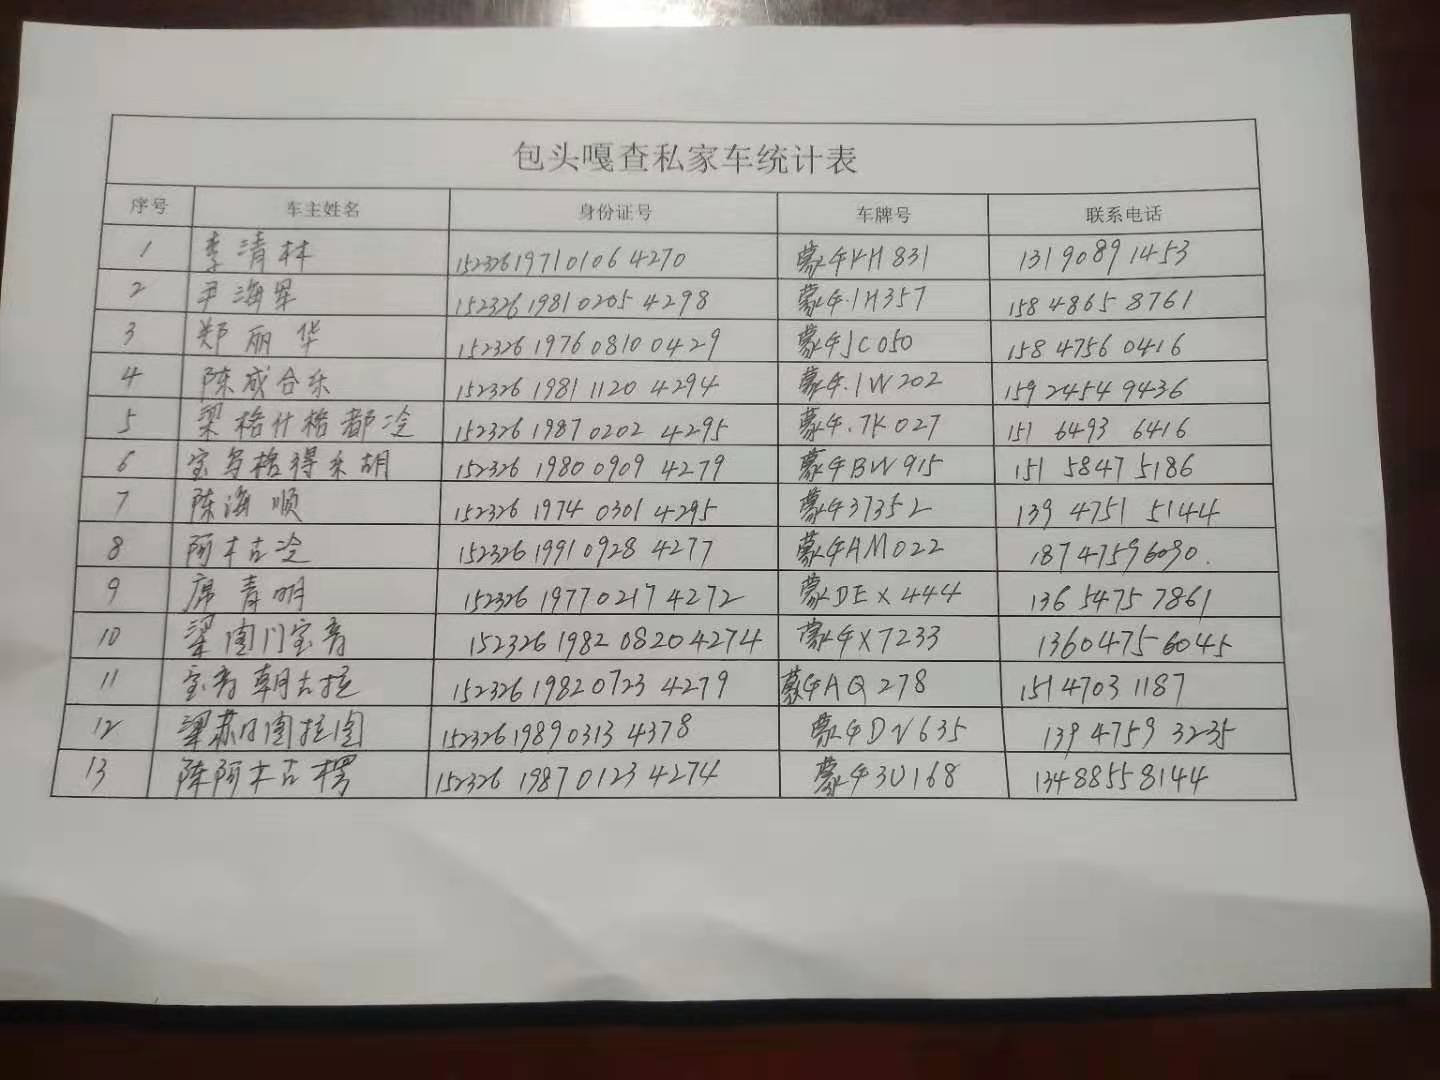 包头嘎查私家车统计表
序号 车主姓名 身份证号 车牌号 联系电话
1 李清林 152326197101064270 蒙GYH831 13190891453
2 尹海军 152326198102054298 蒙G.1H357 15848658761
3 郑丽华 152326197608100429 蒙GJC050 15847560416
4 陈咸合乐 152326198111204294 蒙G.1W202 15924549436
5 梁格什格都冷 152326198702024295 蒙G.7K027 15164936416
6 宝乌格得木胡 152326198009094279 蒙GBW915 15158475186
7 陈海顺 152326197403014295 蒙G37352 13947515144
8 阿木古冷 152326199109284277 蒙GAM022 18747596090.
9 席青明 152326197702174272 蒙DEX444 13654757861
10 梁图门宝音 152326198208204274 蒙GX7233 13604756045
11 宝音朝古拉 152326198207234279 蒙GAQ278 15147031187
12 梁苏日图拉图 152326198903134378 蒙GDV635 13947593235
13 陈阿木古楞 152326198701234274 蒙G3U168 13488558144